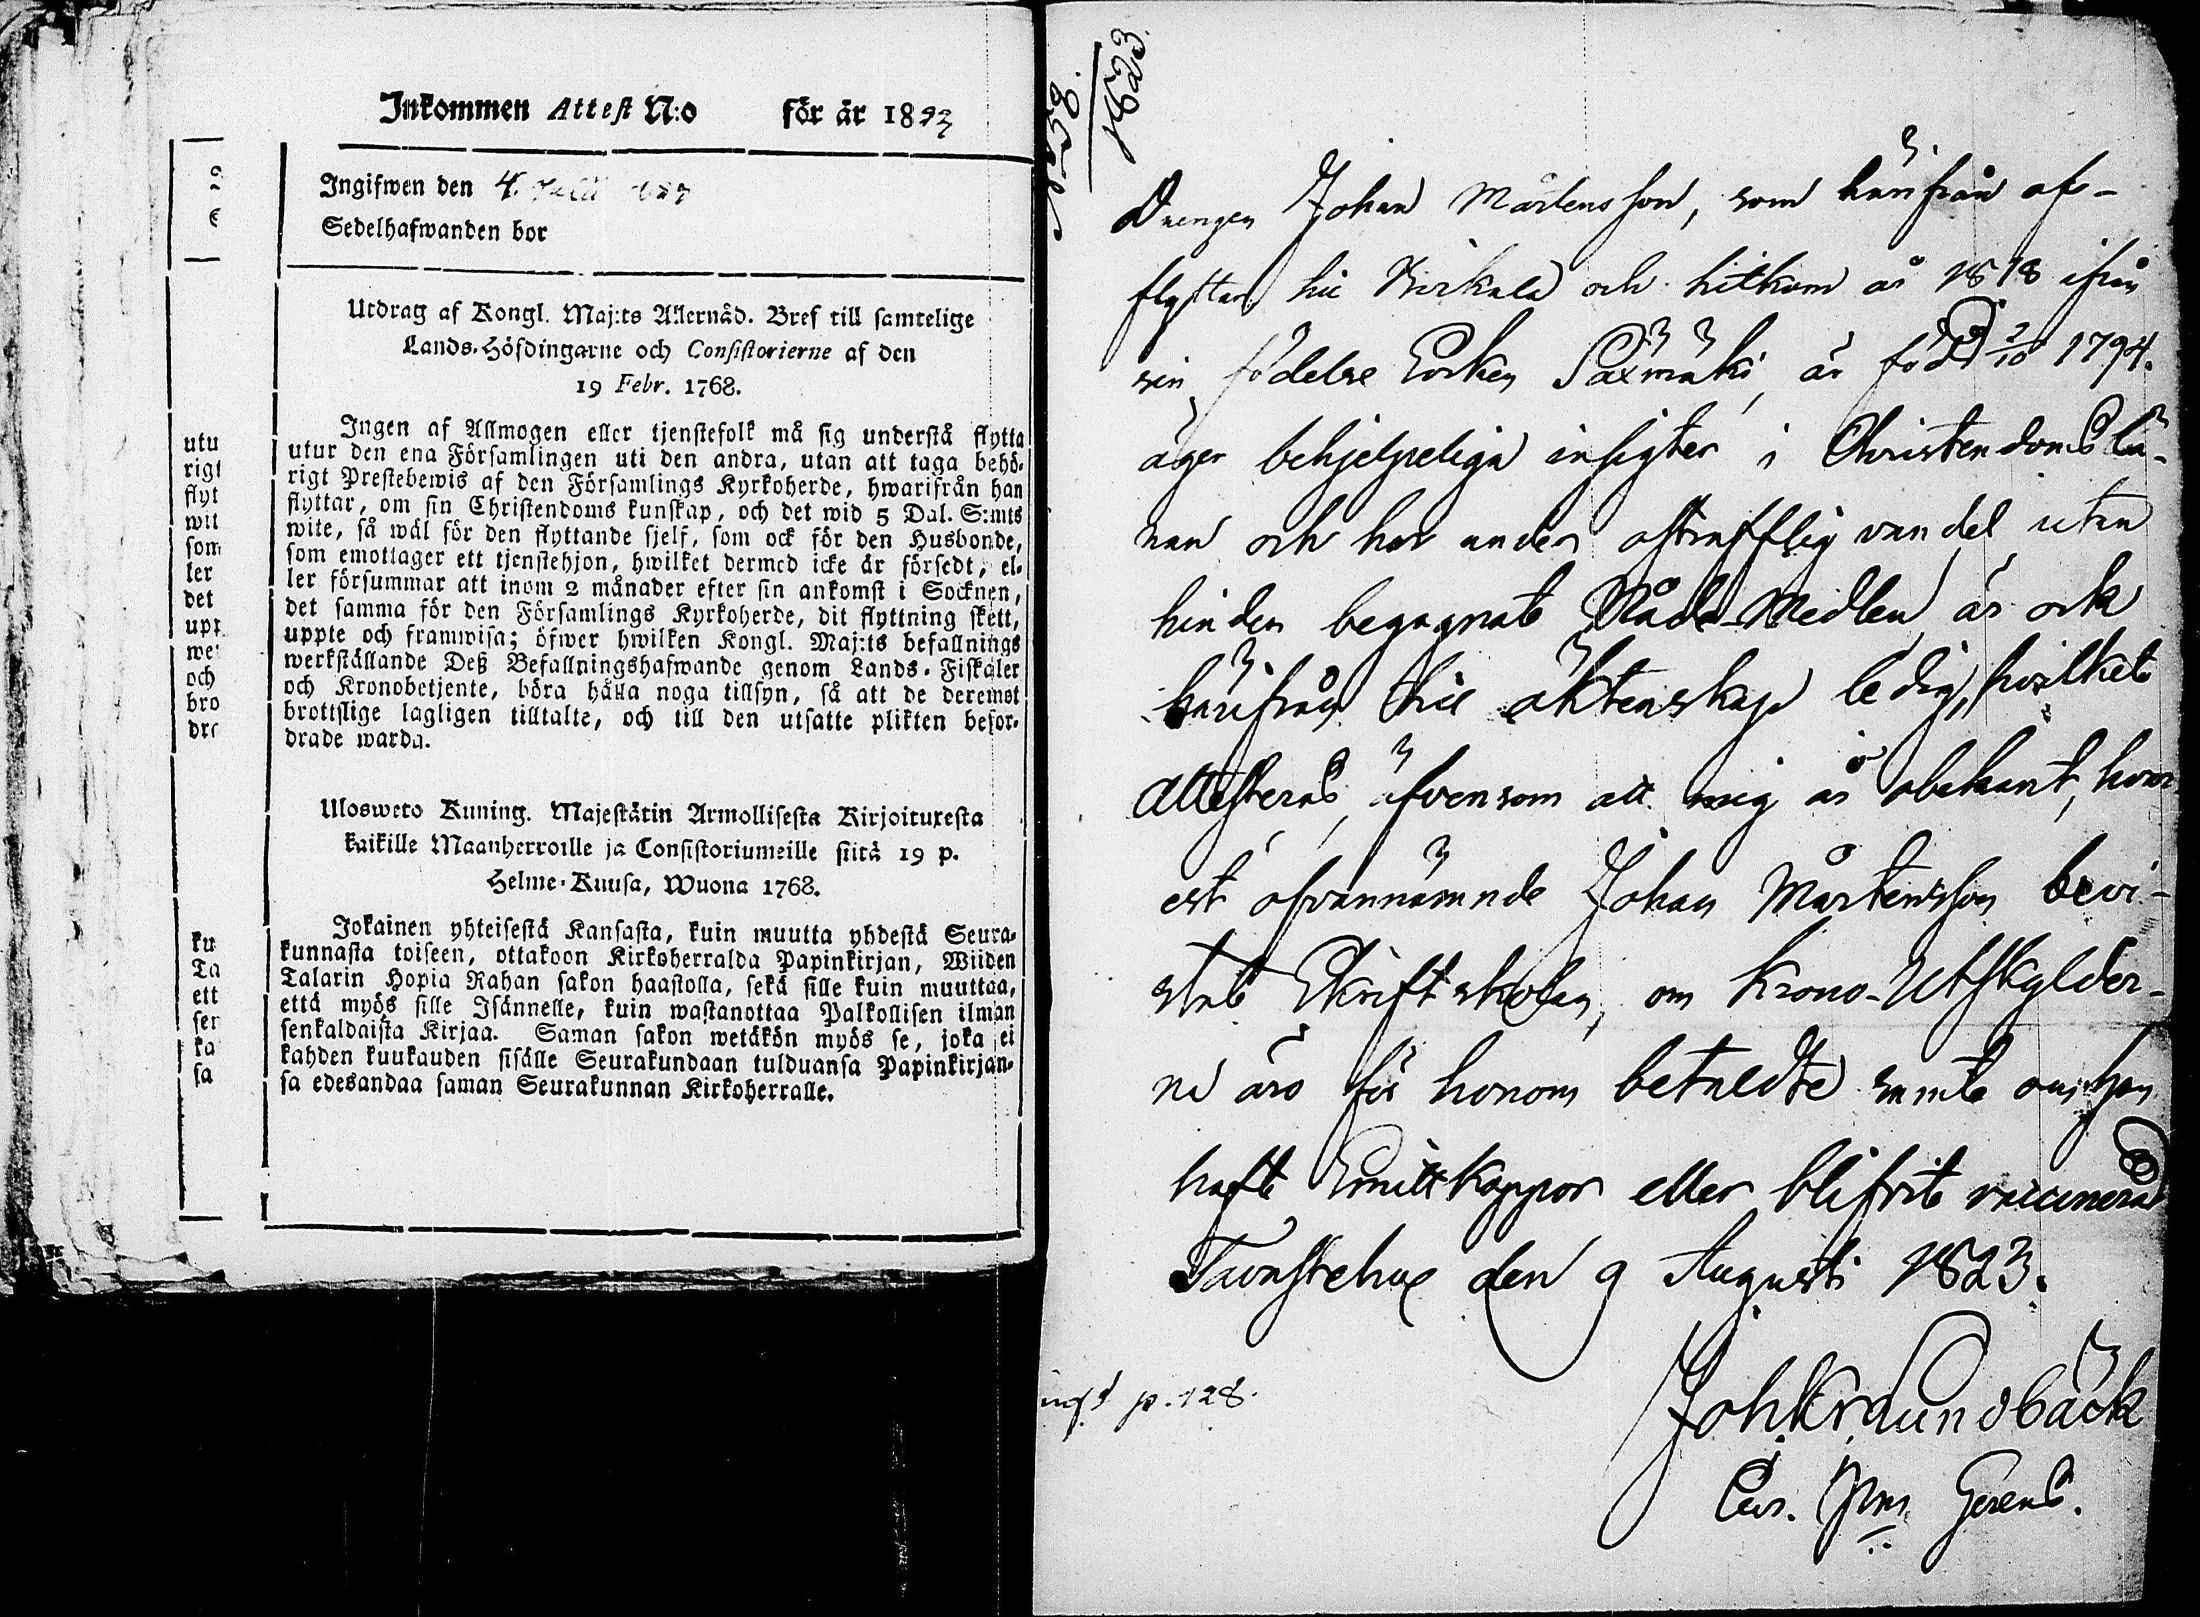 Inkommen Attest N:o för år 1823
Ingifwen den 4. Julii
Sedelhafwanden bor
Utdrag af Kongl. Maj:ts Allernåd. Bref till samtelige
Lands-Höfdingarne och Consistorierne af den
19 Febr. 1768.
Ingen af Allmogen eller tjenstefolk må sig understå flytta
utur den ena Församlingen uti den andra, utan att taga behö-
rigt Prestebewis af den Församlings Kyrkoherde, hwarifrån han
flyttar, om sin Christendoms kunskap, och det wid 5 Dal. S:mts
wite, så wäl för den flyttande sjelf, som ock för den Husbonde,
som emottager ett tjenstehjon, hwilket dermed icke är försedt, el-
ler försummar att inom 2 månader efter sin ankomst i Socknen,
det samma för den Församlings Kyrkoherde, dit flyttning skett,
uppte och framwisa; öfwer hwilken Kongl. Maj:ts befallnings
werkställande Deß Befallningshafwande genom Lands-Fiskaler
och Kronobetjente, böra hålla noga tillsyn, så att de deremot
brottslige lagligen tilltalte, och till den utsatte plikten befor-
drade warda.
Ulosweto Kuning. Majestätin Armollisesta Kirjoituxesta
kaikille Maanherroille ja Consistoriumeille siitä 19 p.
Helme-Kuusa, Wuona 1768.
Jokainen yhteisestä Kansasta, kuin muutta yhdestä Seura-
kunnasta toiseen, ottakoon Kirkoherralda Papinkirjan, Wiiden
Talarin Hopia Rahan sakon haastolla, sekä sille kuin muuttaa,
että myös sille Isännelle, kuin wastanottaa Palkollisen ilman
senkaldaista Kirjaa. Saman sakon wetäkön myös se, joka ei
kahden kuukauden sisälle Seurakundaan tulduansa Papinkirjan-
sa edesandaa saman Seurakunnan Kirkoherralle.
utu
rigt
flyt
wit
som
ler
det
upp
wer
och
bro
dra
ku
Ta
ett
sen
ka
sa
58.
1823.
Drengen Johan Mårtensson, som härifrån af-
flyttar till Birkala och hitkom år 1818 ifrån
sin födelse Socken Säxmäki, är född 2/10 1794.
äger behjelpeliga insigter i Christendoms lä-
ran och har under ostrafflig vandel utan
hinder begagnat Nåde-Medlen är ock
härifrån till äktenskap ledig, hvilket
attesteras, äfvensom att mig är obekant, hvar-
est ofvannämnde Johan Mårtensson bevi-
stat Skriftskolan, om Krono-Utskylder-
ne äro för honom betaldte samt om han
haft Smittkoppor eller blifvit vaccinerad
Tavastehus den 9 Augusti 1823.
Joh Kr Sundbäck
Past. Gerens.
p. 128.